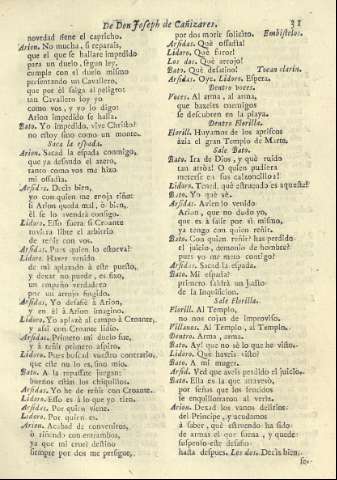 De Don Joseph de Cañizares. 31
novedad tiene el capricho.
Arion. No mucha, si reparais,
que el que se hallare impedido
para un duelo, segun ley,
cumple con el duelo mismo
presentando un Cavallero,
que por él salga al peligro:
tan Cavallero soy yo
como vos, y yo lo digo:
Arion impedido se halla.
Bato. Yo impedido, vive Christo?
no estoy sino como un monte.
Saca la espada.
Arion. Sacad la espada conmigo,
que ya desnudo el azero,
tanto como vos me hizo
mi ossadia.
Arsidas. Decis bien,
yo con quien me enoja riño:
si Arion queda mal, ò bien,
él se lo avendrà consigo.
Lidoro. Esso fuera si Croante
tuviera libre el arbitrio
de reñir con vos.
Arsidas. Pues quien lo estorva?
Lidoro. Haver venido
de mi aplazado à este puesto,
y dexar no puede, es fixo,
un empeño verdadero
por un arrojo fingido.
Arsidas. Yo desafiè à Arion,
y en él à Arion imagino.
Lidoro. Yo aplazè al campo à Croante,
y assi con Croante lidio.
Arsidas. Primero mi duelo fue,
y à reñir primero aspiro.
Lidoro. Pues buscad vuestro contrario,
que este no lo es, sino mio.
Bato. A la rapastiña juegan:
buenos están los chiquillos.
Arsidas. Yo he de reñir con Croante.
Lidoro. Esso es à lo que yo tiro.
Arsidas. Por quien viene.
Lidoro. Por quien es.
Arion. Acabad de conveniros,
ò riñendo con entrambos,
ya que mi cruel destino
siempre por dos me persigue,
por dos morir solicito. Embistelos.
Arsidas. Què ossadia!
Lidoro. Què furor!
Los dos. Què arrojo!
Bato. Què desatino! Tocan clarin.
Arsidas. Oye. Lidoro. Espera.
Dentro voces.
Voces. Al arma, al arma,
que baxeles enemigos
se descubren en la playa.
Dentro Florilla.
Floril. Huyamos de los apriscos
àzia el gran Templo de Marte.
Sale Bato.
Bato. Ira de Dios, y què ruido
tan atròz! O quien pudiera
meterse en un calzoncillo!
Lidoro. Tened, què estruendo es aquesta?
Bato. Yo què sè.
Arsidas. Avienlo venido
Arion, que no dudo yo,
que es à salir por sì mismo,
ya tengo con quien reñir.
Bato. Con quien reñir? has perdido
el juicio, demonio de hombre?
pues yo me meto contigo?
Arsidas. Sacad la espada.
Bato. Mi espada?
primero saldrà un Jueso
de la Inquisicion.
Sale Florilla.
Floril. Al Templo,
no nos cojan de improviso.
Villanos. Al Templo, al Templo.
Dentro. Arma, arma.
Bato. Ay! que no sè lo que he visto.
Lidoro. Què haveis visto?
Bato. A mi muger.
Arsid. Ved que aveis perdido el juicio.
Bato. Ella es la que atravesò,
por señas que los sentidos
se enquillotraron al verla.
Arion. Dexad los vanos delirios
del Principe, y acudamos
à saber, què estruendo ha sido
de armas el que suena, y quede
suspenso este desafio
hasta despues. Los dos. Decis bien.